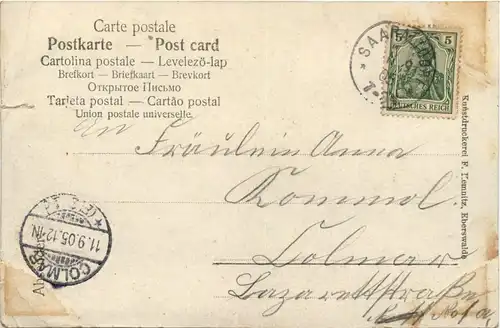 Carte postale
Postkarte — Post card
Cartolina postale — Levelező-lap
Brefkort — Briefkaart — Brevkort
Открытое Письмо
Tarjeta postal — Cartão postal
Union postale universelle.
An
Fräulein Anna
Rommel
Colmar
Lazarettstraße
5 5
DEUTSCHES REICH
SAAR
COLMAR
11.9.05.12-1N
Kunstdruckerei F. Lemnitz, Eberswalde